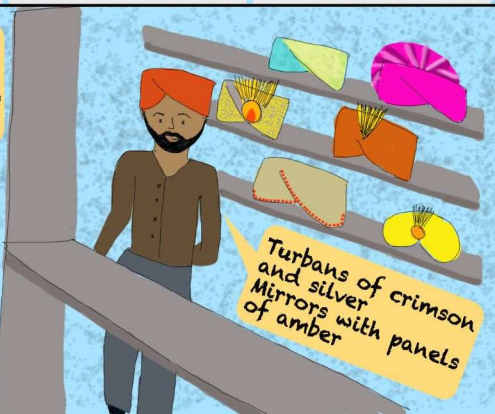 Turbans of crimson
and silver
Mirrors with panels
of amber